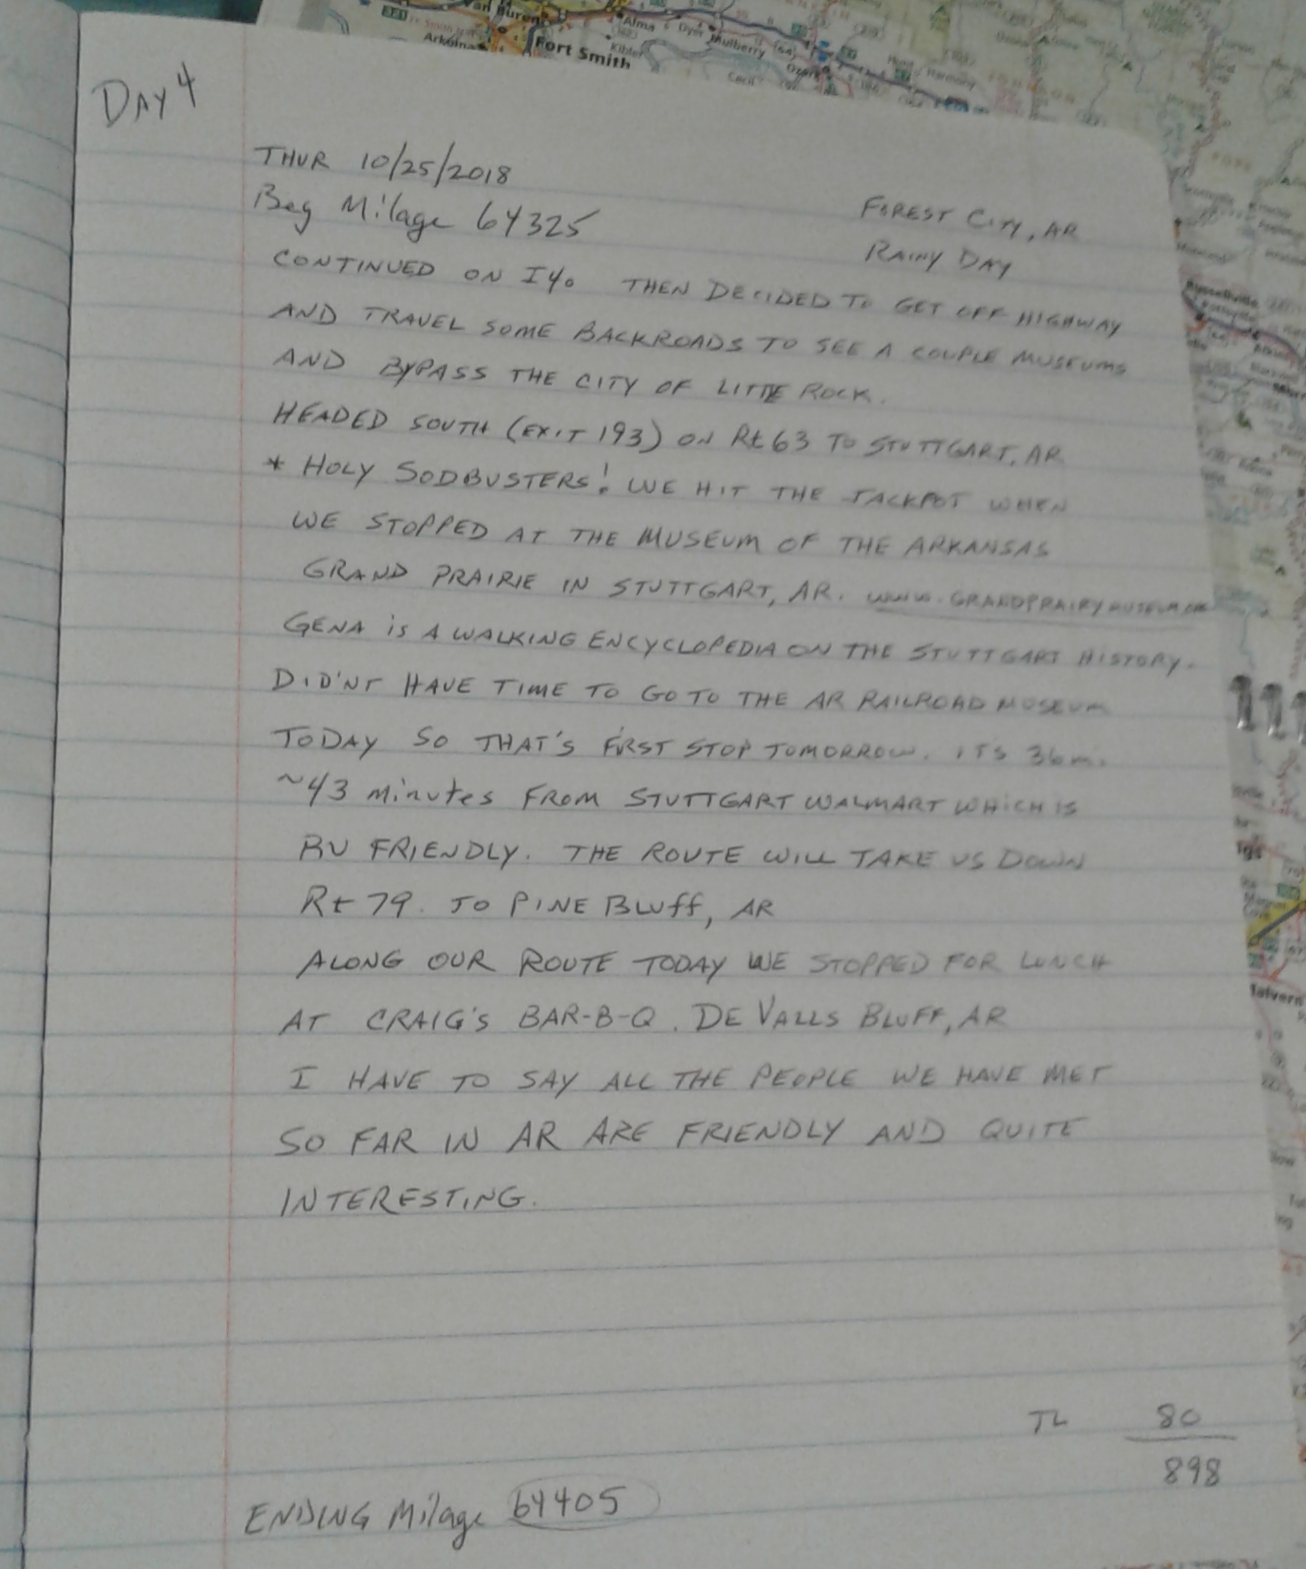 Van Buren
Alma
Dyer
Mulberry
Kibler
Fort Smith
Ozark
Cecil
DAY 4
THUR 10/25/2018
Beg Milage 64325
FOREST CITY, AR
RAINY DAY
CONTINUED ON I40 THEN DECIDED TO GET OFF HIGHWAY
AND TRAVEL SOME BACKROADS TO SEE A COUPLE MUSEUMS
AND BYPASS THE CITY OF LITTLE ROCK.
HEADED SOUTH (EXIT 193) ON Rt 63 TO STUTTGART, AR
* HOLY SODBUSTERS! WE HIT THE JACKPOT WHEN
WE STOPPED AT THE MUSEUM OF THE ARKANSAS
GRAND PRAIRIE IN STUTTGART, AR.
GENA is A WALKING ENCYCLOPEDIA ON THE STUTTGART HISTORY.
DID'NT HAVE TIME TO GO TO THE AR RAILROAD MUSEUM
TODAY SO THAT'S FIRST STOP TOMORROW. ITS 36 mi.
~43 minutes FROM STUTTGART WALMART WHICH iS
RV FRIENDLY. THE ROUTE WILL TAKE US DOWN
Rt 79. TO PINE BLUff, AR
ALONG OUR ROUTE TODAY WE STOPPED FOR LUNCH
AT CRAIG'S BAR-B-Q. DE VALLS BLUFF, AR
I HAVE TO SAY ALL THE PEOPLE WE HAVE MET
SO FAR IN AR ARE FRIENDLY AND QUITE
INTERESTING.
TL 80
898
ENDING Milage 64405
Russellville
111
Malvern